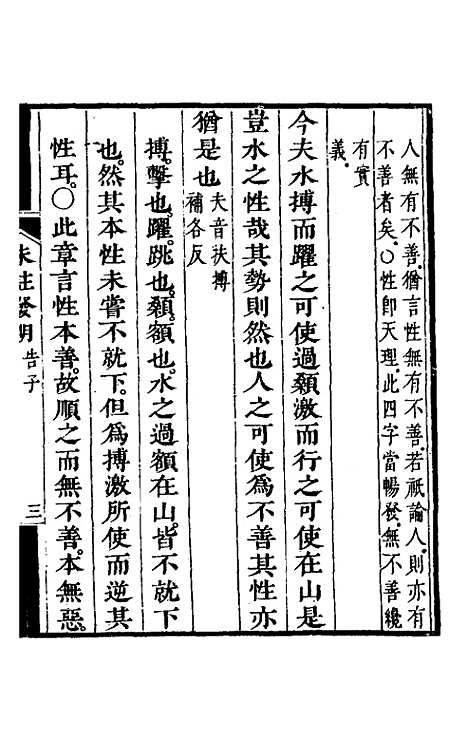 人無有不善。猶言性無有不善。若祇論人。則亦有
不善者矣。○性即天理。此四字當暢發。無不善纔
有實
義。
今夫水搏而躍之可使過顙激而行之可使在山是
豈水之性哉其勢則然也人之可使為不善其性亦
猶是也
夫音扶搏
補各反
搏。擊也。躍。跳也。顙。額也。水之過額在山。皆不就下
也。然其本性未嘗不就下。但為搏激所使而逆其
性耳。○此章言性本善。故順之而無不善。本無惡。
朱註發明
告子
三